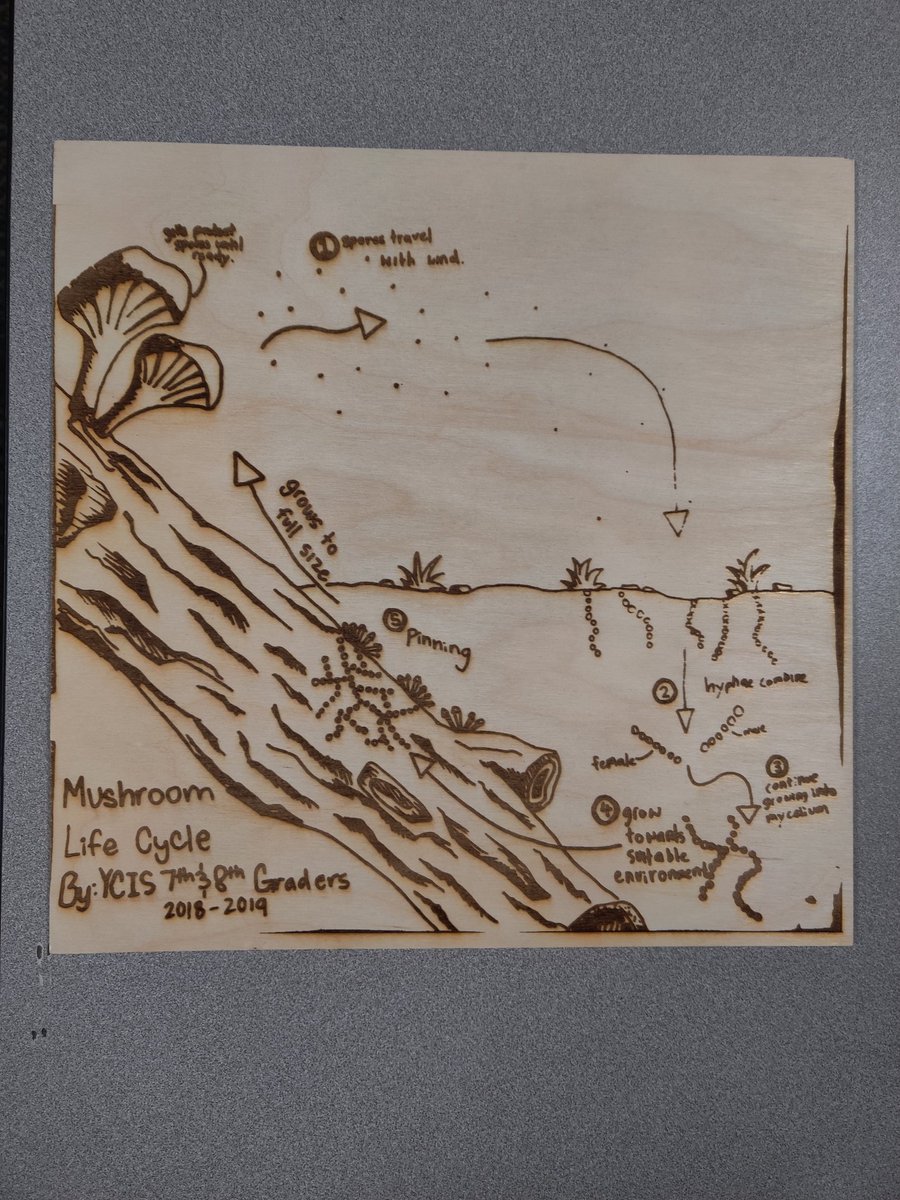 gills protect
spores until
ready.
1 spores travel
with wind.
grows to
full size
5 Pinning
2 hyphae combine
male
female
3
continue
growing into
mycelium
4 grow
towards
suitable
environments
Mushroom
Life Cycle
By: YCIS 7th & 8th Graders
2018-2019